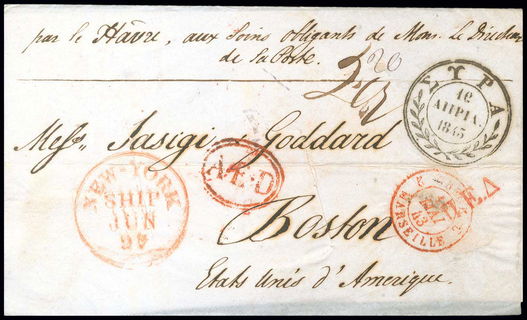 par le Hâvre, aux Soins obligeants de Mons. Le Directeur
de la Poste.
20
ΣΥΡΑ
16
ΑΠΡΙΛ.
1845
Mess. Iasigi & Goddard
A.E.D
NEW-YORK
SHIP
JUN
24
MARSEILLE
Π.Ε.Δ
Boston
Etats Unis d'Amerique.